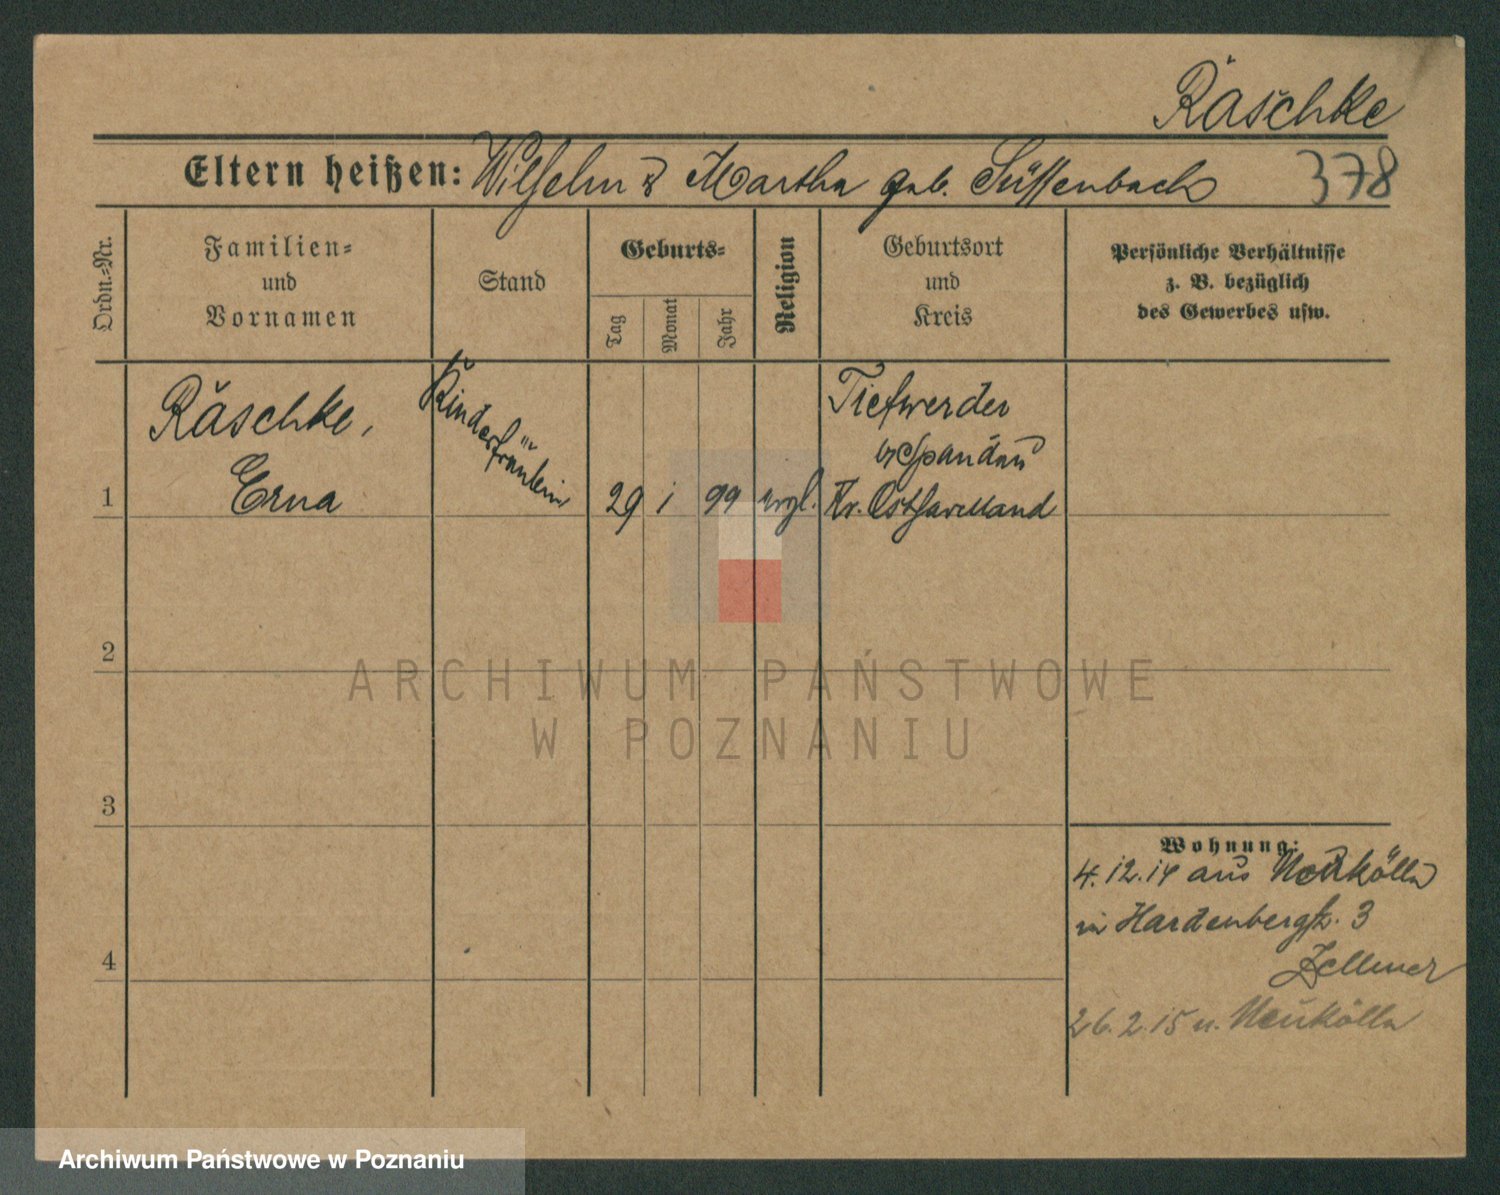 Räschke
Eltern heißen: Wilhelm & Martha geb. Süssenbach 378
Ordn.-Nr.
Familien-
und
Vornamen
Stand
Geburts-
Tag
Monat
Jahr
Religion
Geburtsort
und
Kreis
Persönliche Verhältnisse
z. B. bezüglich
des Gewerbes usw.
1
Räschke,
Erna
Kinderfräulein
29 1 99 evgl.
Tiefwerder
b/Spandau
Kr. Osthavelland
2
3
4
Wohnung:
4.12.14 aus Neukölln
in Hardenbergstr. 3
Zellmer
26.2.15 n. Neukölln
ARCHIWUM PAŃSTWOWE
W POZNANIU
Archiwum Państwowe w Poznaniu